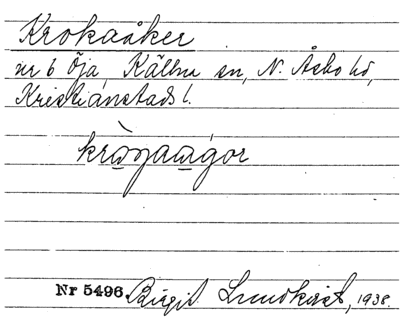 Krokaåker
nr 6 Öja, Källna sn, N. Åsbo hd,
Kristianstads l.
Nr 5496. Birgit Lundkvist, 1938.